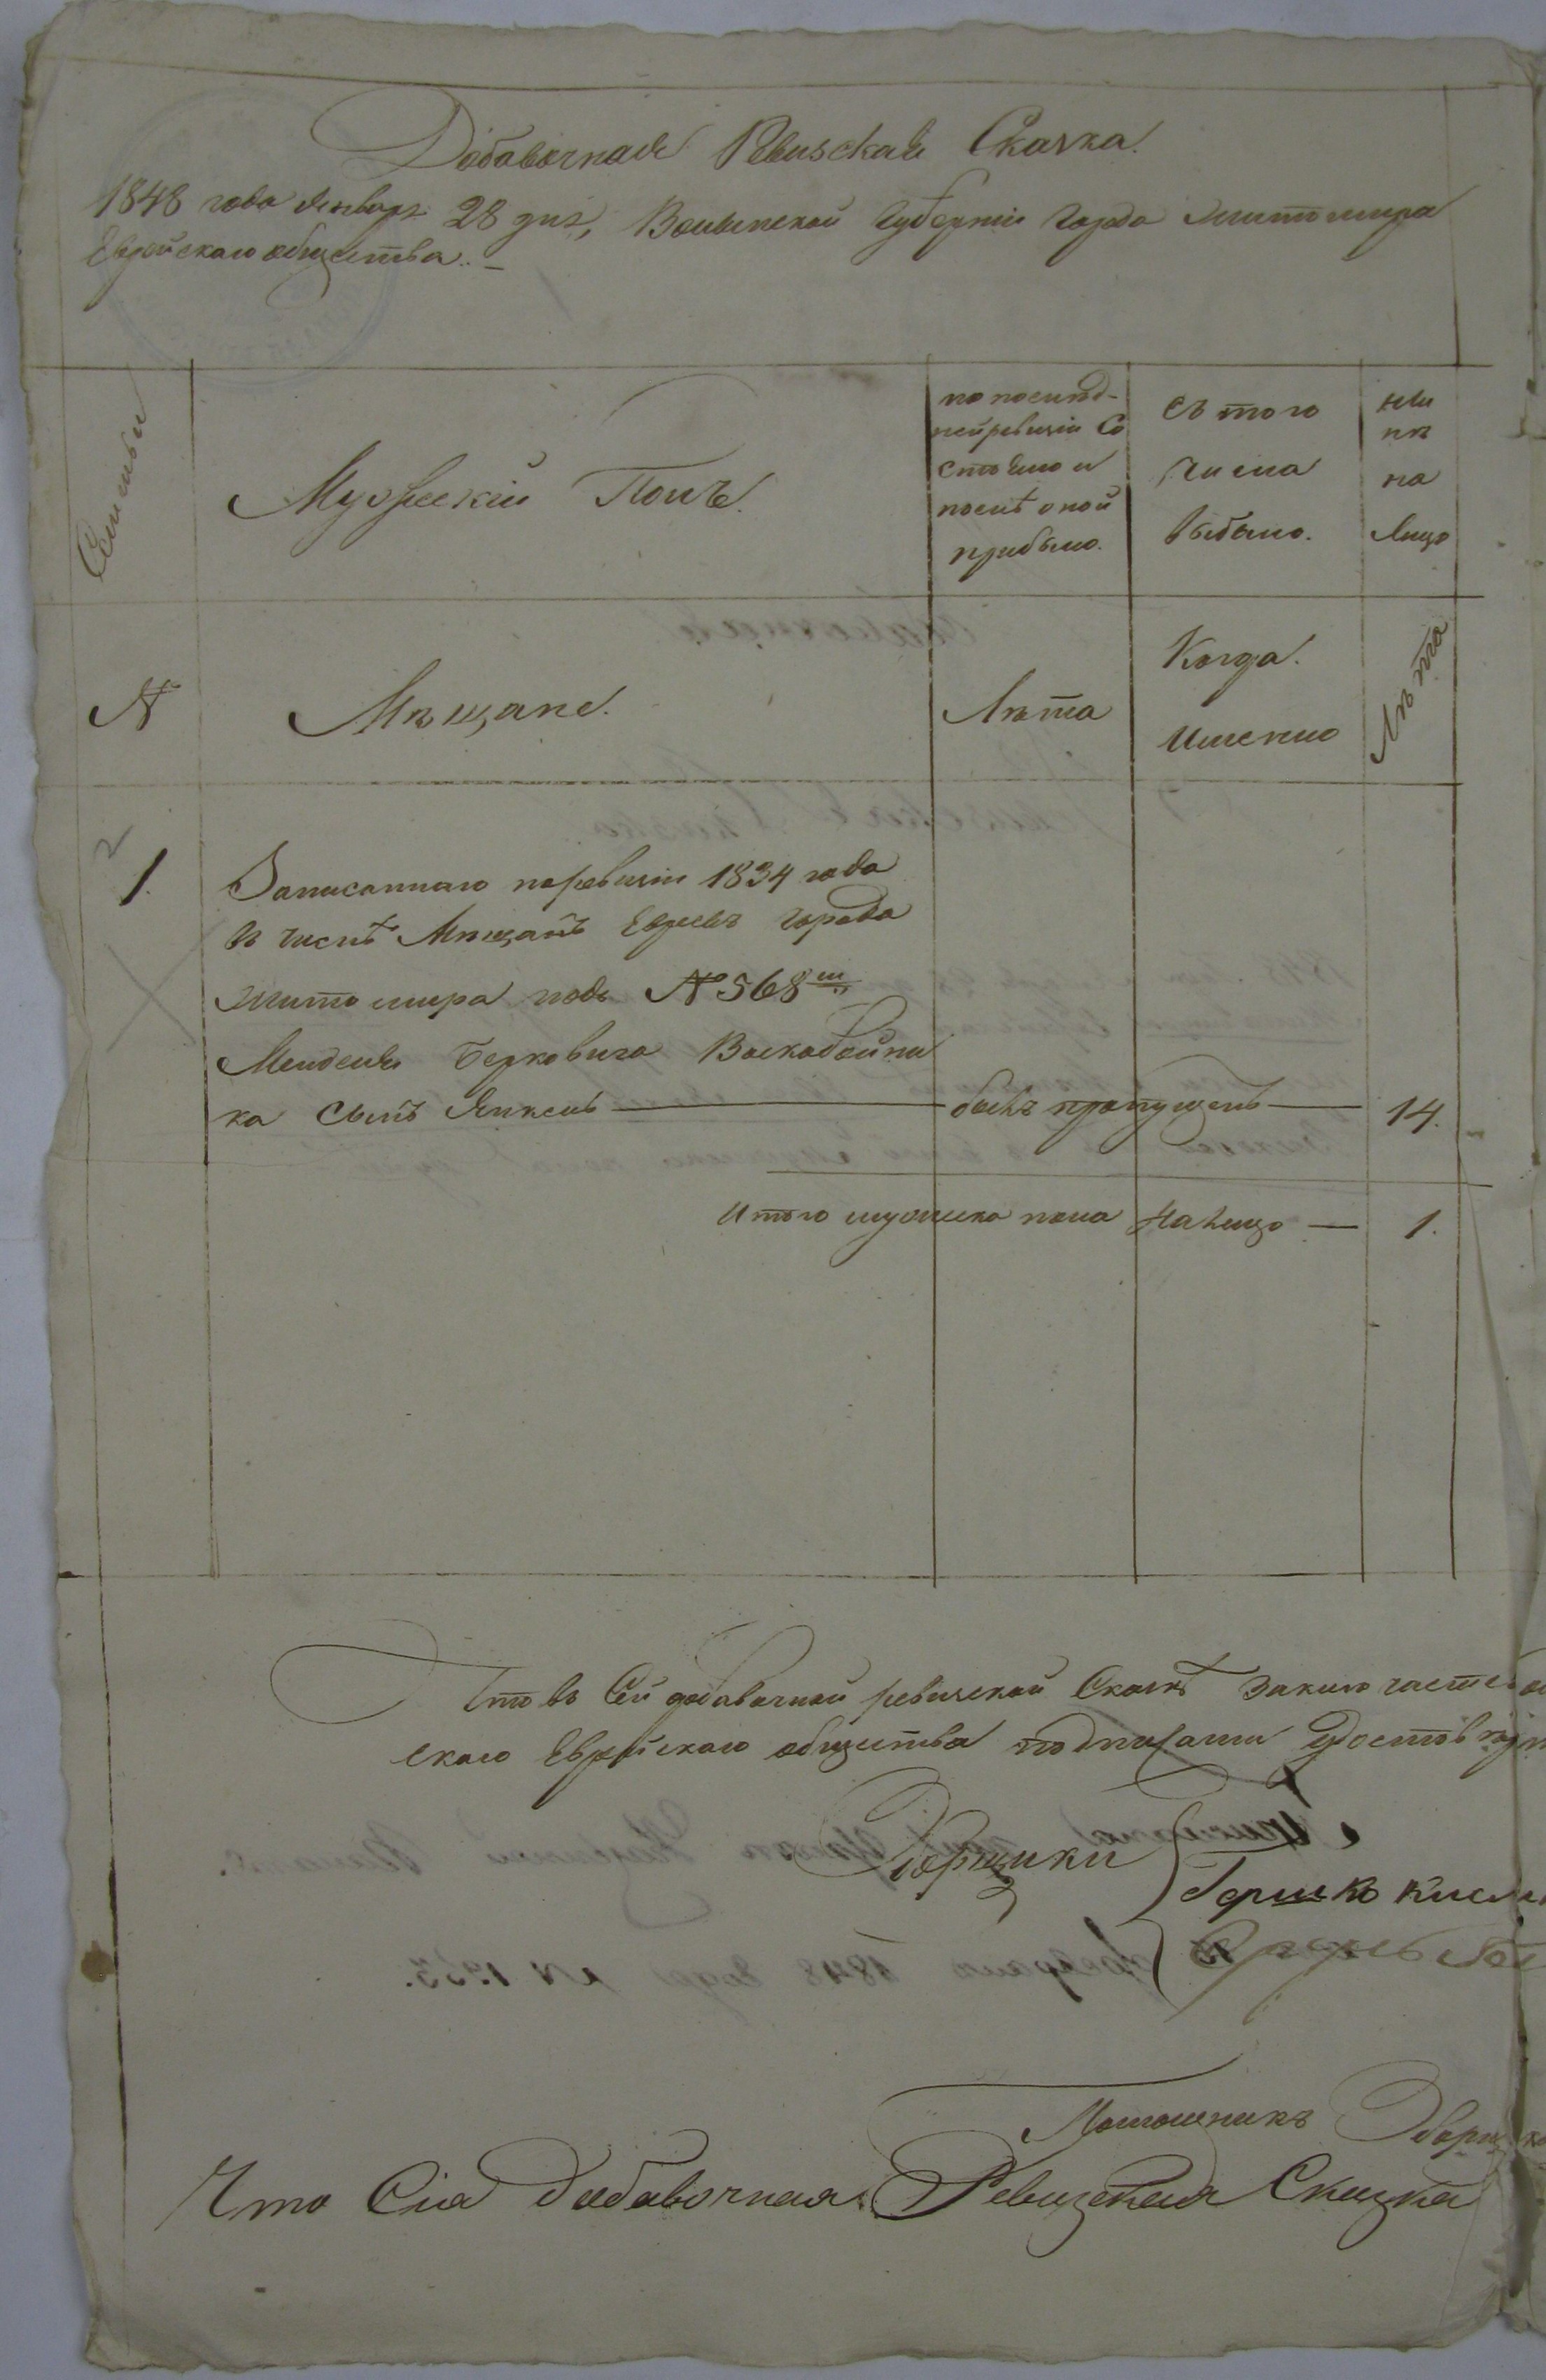 Добавочная Ревизская Сказка.
1848 года Января 28 дня, Волынской Губернии города Житомира
Еврейского общества. –
Семьи
Мужеский Полъ.
по послѣд-
ней ревизіи Со
стояло и
послѣ оной
прибыло.
съ того
числа
выбыло.
ны
нѣ
на
лицо
№
Мѣщане.
Лѣта
Когда
Именно
Лѣта
2
1.
Записаннаго по ревизіи 1834 года
въ числѣ Мѣщанъ Евреевъ города
Житомира подъ № 568мъ
Менделя Берковича Воскобойни
ка сынъ Янкель — былъ пропущенъ — 14.
Итого мужеска пола на лицо — 1.
Что въ Сей добавочной ревизской Сказкѣ
скаго Еврейскаго общества подписами
Зборщики
Гершко
Помошникъ
Что Сія Добавочная Ревизская Сказка